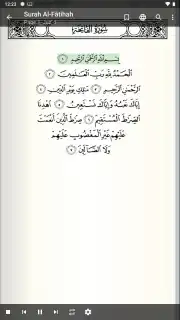 12:23
Surah Al-Fātihah
سُورَةُ الْفَاتِحَةِ
بِسْمِ اللَّهِ الرَّحْمَٰنِ الرَّحِيمِ ١
الْحَمْدُ لِلَّهِ رَبِّ الْعَالَمِينَ ٢
الرَّحْمَٰنِ الرَّحِيمِ ٣ مَالِكِ يَوْمِ الدِّينِ ٤
إِيَّاكَ نَعْبُدُ وَإِيَّاكَ نَسْتَعِينُ ٥ اهْدِنَا
الصِّرَاطَ الْمُسْتَقِيمَ ٦ صِرَاطَ الَّذِينَ أَنْعَمْتَ
عَلَيْهِمْ غَيْرِ الْمَغْضُوبِ عَلَيْهِمْ
وَلَا الضَّالِّينَ ٧